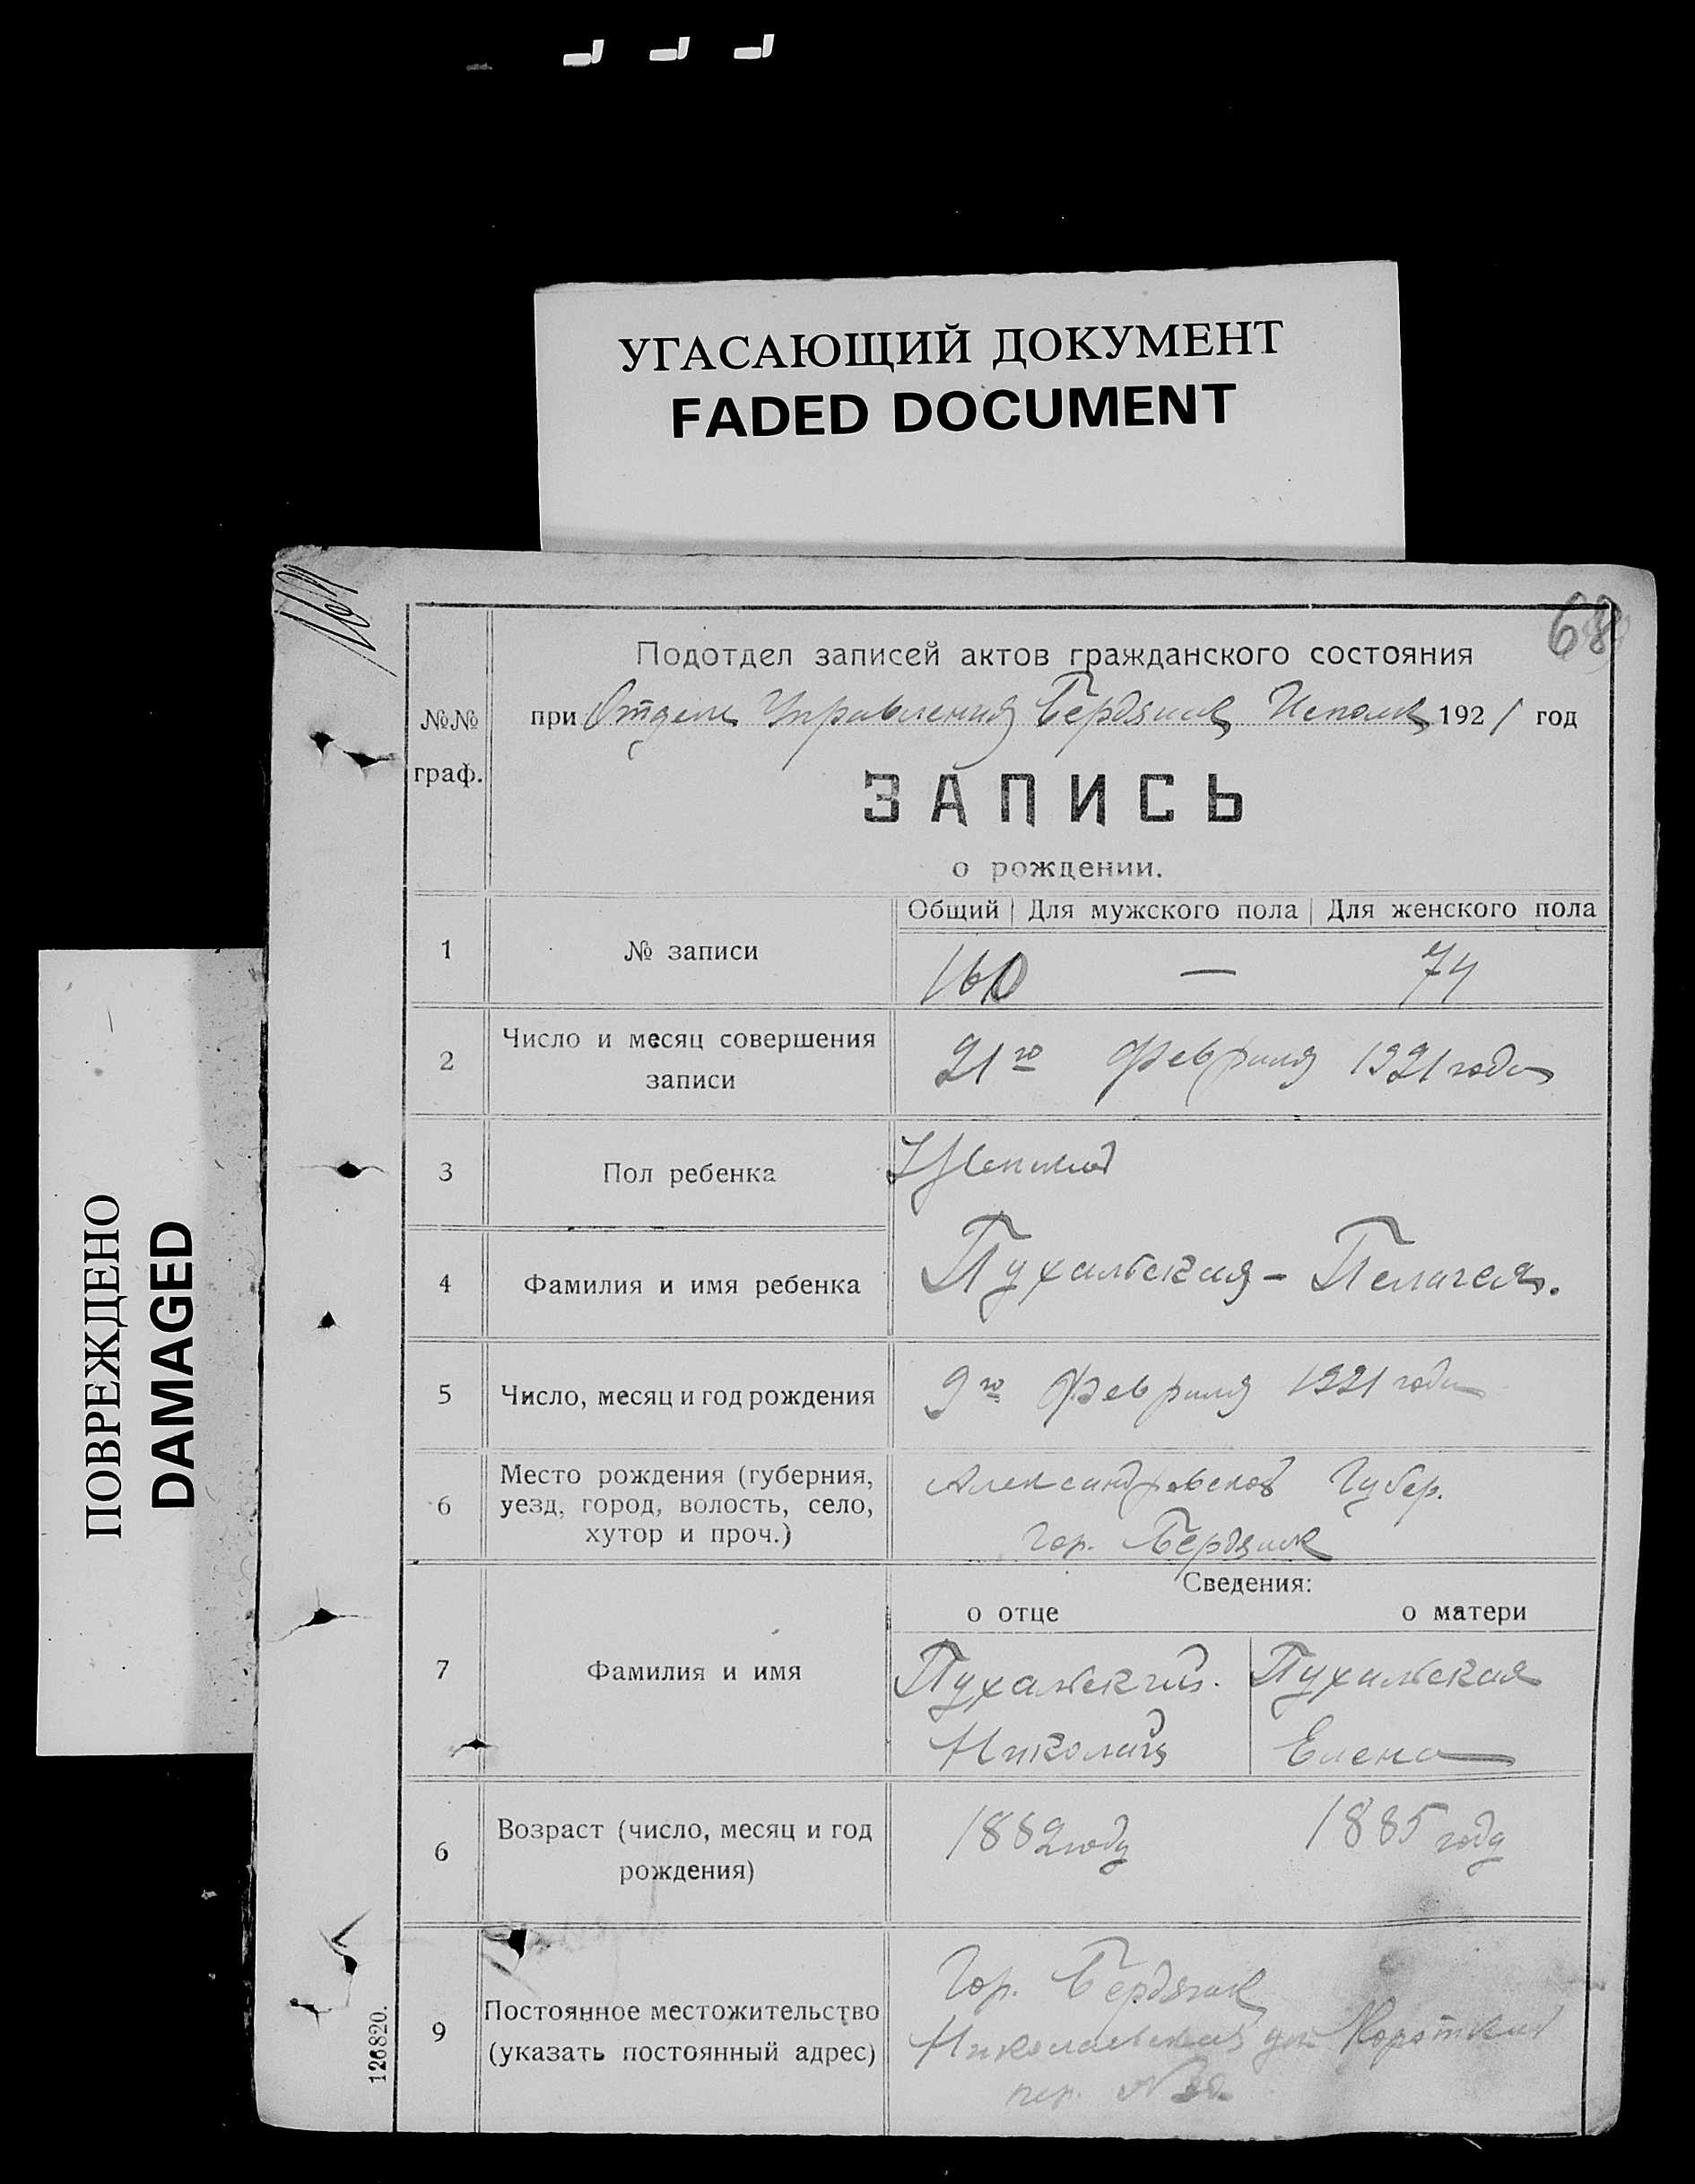 УГАСАЮЩИЙ ДОКУМЕНТ
FADED DOCUMENT
ПОВРЕЖДЕНО
DAMAGED
68
Подотдел записей актов гражданского состояния
№№ граф.
при Отделе Управления Бердянск Исполк 1921 год
ЗАПИСЬ
о рождении.
Общий | Для мужского пола | Для женского пола
1 № записи 160 — 74
2 Число и месяц совершения
записи
21го февраля 1921 года
3 Пол ребенка Женский
4 Фамилия и имя ребенка Пухальская - Пелагея.
5 Число, месяц и год рождения 9го февраля 1921 года
6 Место рождения (губерния,
уезд, город, волость, село,
хутор и проч.)
Александровской Губер.
гор. Бердянск
Сведения:
о отце о матери
7 Фамилия и имя
Пухальский. Пухальская
Николай Елена
6 Возраст (число, месяц и год
рождения)
1882 году 1885 году
9 Постоянное местожительство
(указать постоянный адрес)
Гор. Бердянск
Николаевская Короткий
пер. №
126820.